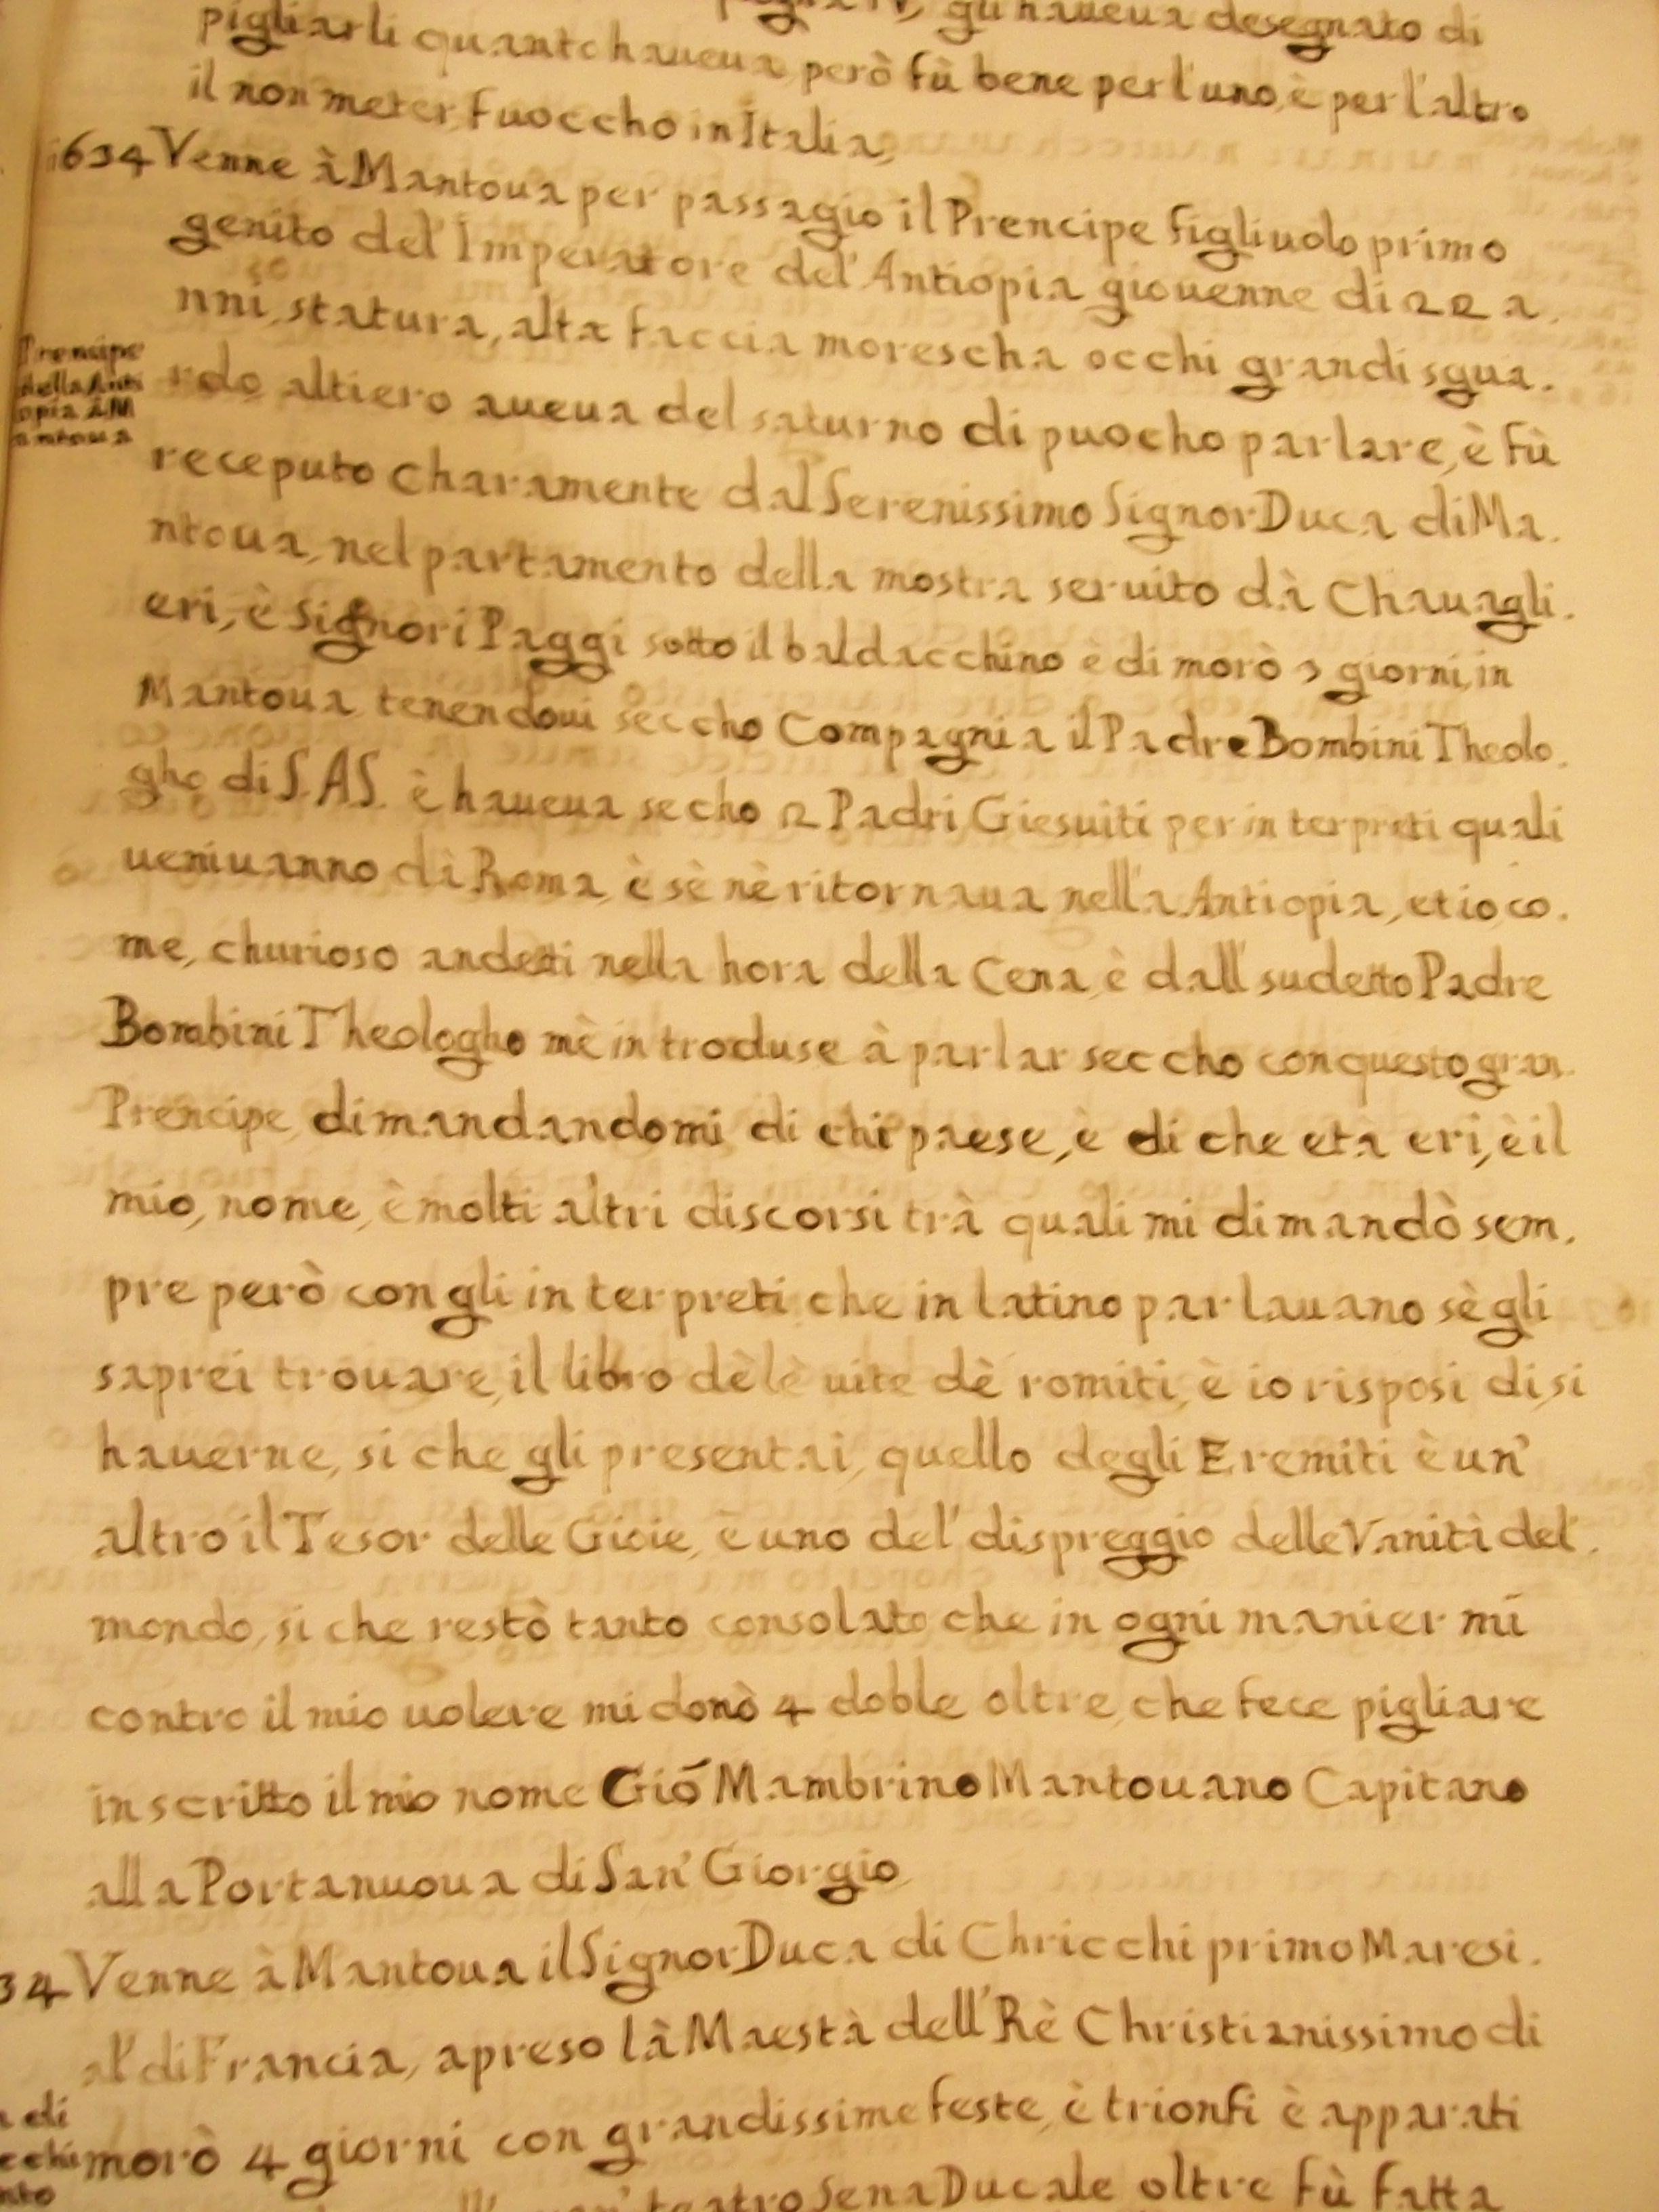 gli haueua desegnato di
pigliarli quanto haueua, però fù bene per l'uno, è per l'altro
il non meter, fuoccho in Italia,
1634 Venne à Mantoua per passagio il Prencipe figliuolo primo
genito del' Imperatore del' Antiopia giouenne di 22 a.
nni, statura, alta faccia morescha occhi grandi sgua.
Prencipe
della Anti
opia à M
antoua
rdo altiero aueua del saturno di puocho parlare, è fù
receputo charamente dal Serenissimo Signor Duca di Ma.
ntoua, nel partamento della mostra seruito dà Chauagli.
eri, è Signori Paggi sotto il baldacchino è di morò 3 giorni, in
Mantoua tenendoui seccho Compagnia il Padre Bombini Theolo.
gho di S.A.S. è haueua secho 2 Padri Giesuiti per interpreti quali
ueniuanno dà Roma, è sè nè ritornaua nella Antiopia, et io, co.
me, churioso andetti nella hora della Cena, è dall' sudetto Padre
Bombini Theologho mè introduse à parlar seccho con questo gran.
Prencipe, dimandandomi di chi paese, è di che eta eri, è il
mio, nome, è molti altri discorsi trà quali mi dimandò sem.
pre però con gli interpreti che in latino parlauano sè gli
saprei trouare, il libro dè lè uite dè romiti, è io risposi di, si
hauerne, si che gli presentai, quello degli Eremiti è un'
altro il Tesor delle Gioie, è uno del' dispreggio delle Vanità del'.
mondo, si che restò tanto consolato che in ogni manier mi
contro il mio uolere mi donò 4 doble oltre, che fece pigliare
in scritto il mio nome Gió Mambrino Mantouano Capitano
alla Portanuoua di San' Giorgio,
34 Venne à Mantoua il Signor Duca di Chricchi primo Maresi.
al' di Francia, apreso là Maestà dell' Rè Christianissimo di
di
morò 4 giorni con grandissime feste, è trionfi è apparati
teatro Sena Ducale oltre fù fatta